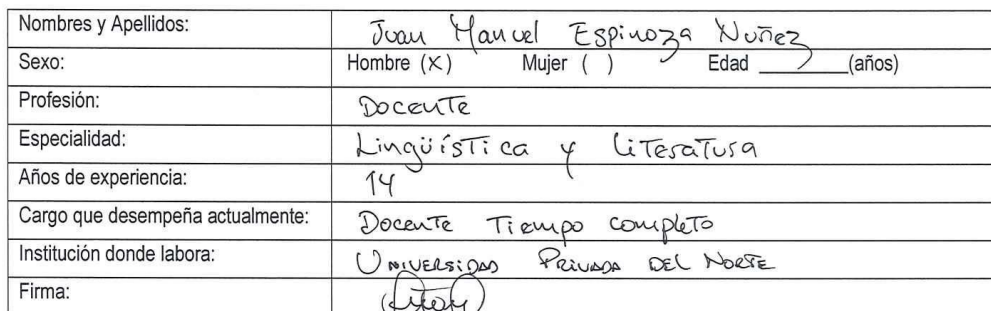 Nombres y Apellidos: Juan Manuel Espinoza Nuñez
Sexo: Hombre (X) Mujer ( ) Edad ________(años)
Profesión: Docente
Especialidad: Lingüística y Literatura
Años de experiencia: 14
Cargo que desempeña actualmente: Docente Tiempo completo
Institución donde labora: UNIVERSIDAD PRIVADA DEL NORTE
Firma: